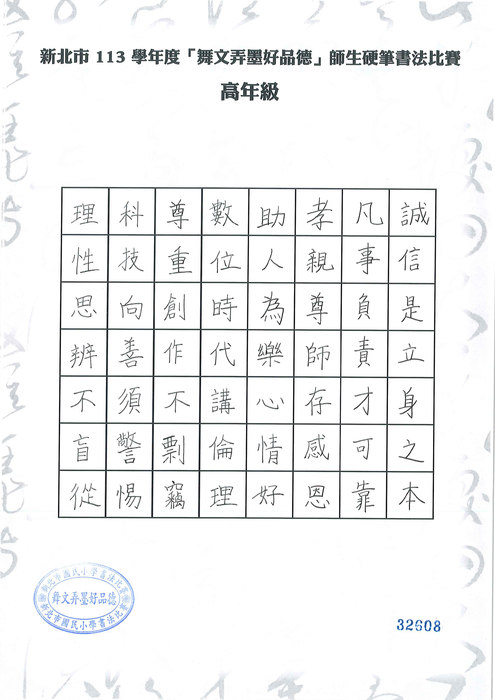 新北市 113 學年度「舞文弄墨好品德」師生硬筆書法比賽
高年級
誠信是立身之本
凡事負責才可靠
孝親尊師存感恩
助人為樂心情好
數位時代講倫理
尊重創作不剽竊
科技向善須警惕
理性思辨不盲從
新北市國民小學書法比賽
舞文弄墨好品德
新北市國民小學書法比賽
32608